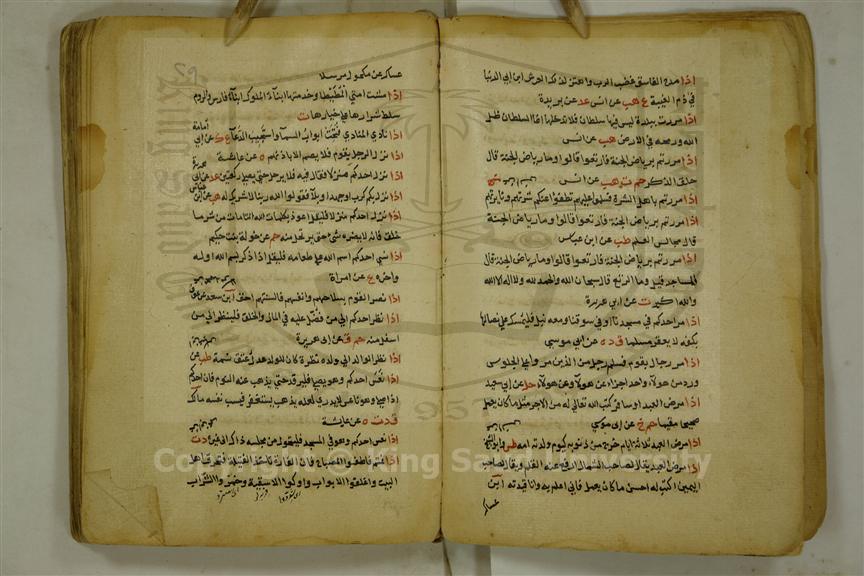 اذا مدح الفاسق غضب الرب واهتز لذلك العرش ابن ابي الدنيا
في ذم الغيبة ع هب عن انس عد عن بريدة
اذا مررت ببلدة ليس فيها سلطان فلا تدخلها انما السلطان ظل
الله ورمحه في الارض هب عن انس
اذا مررتم برياض الجنة فارتعوا قالوا وما رياض الجنة قال
حلق الذكر حم ت هب عن انس
اذا مررتم باهل الشرة فسلموا عليهم تطفا عنكم شرتهم ونائرتهم
اذا مررتم برياض الجنة فارتعوا قالوا وما رياض الجنة
قال مجالس العلم طب عن ابن عباس
اذا مررتم برياض الجنة فارتعوا قالوا وما رياض الجنة قال
المساجد قيل وما الرتع قال سبحان الله والحمد لله ولا اله الا الله
والله اكبر ت عن ابي هريرة
اذا مر احدكم في مسجدنا او في سوقنا ومعه نبل فليمسك على نصالها
بكفه لا يعقر مسلما ق د ه عن ابي موسى
اذا مر رجال بقوم فسلم رجل من الذين مروا على الجلوس
ورد من هولاء واحد اجزاء عن هولاء وعن هولاء حل عن ابي سعيد
اذا مرض العبد او سافر كتب الله تعالى له من الاجر مثل ما كان يعمل
صحيحا مقيما حم خ عن ابي موسى
اذا مرض العبد ثلاثة ايام خرج من ذنوبه كيوم ولدته امه طس
اذا مرض العبد يقال لصاحب الشمال ارفع عنه القلم ويقال لصاحب
اليمين اكتب له احسن ما كان يعمل فاني اعلم به وانا قيدته ابن
عساكر
عساكر عن مكحول مرسلا
اذا مشت امتي المطيطا وخدمتها ابناء الملوك ابناء فارس والروم
سلط شرارها على خيارها ت
اذا نادى المنادي فتحت ابواب السما واستجيب الدعا ع ك عن ابي
امامة
اذا نزل الرجل بقوم فلا يصم الا باذنهم ه عن عائشة
اذا نزل احدكم منزلا فقال فيه فلا يرحل حتى يصلي ركعتين عد عن ابي
هريرة
اذا نزل بكم كرب او جهد او بلاء فقولوا الله ربنا لا شريك له هب عن ابن
عباس
اذا نزل احدكم منزلا فليقل اعوذ بكلمات الله التامات من شر ما
خلق فانه لا يضره شئ حتى يرتحل منه م عن خولة بنت حكيم
اذا نسي احدكم اسم الله على طعامه فليقل اذا ذكر بسم الله اوله
واخره ع عن امراة
اذا نصر القوم بسلاحهم وانفسهم فالسنتهم احق ابن سعد عن
اذا نظر احدكم الى من فضل عليه في المال والخلق فلينظر الى من
اسفل منه حم ق عن ابي هريرة
اذا نظر الوالد الى ولده نظرة كان للولد عدل عتق نسمة طب عن
اذا نعس احدكم وهو يصلي فليرقد حتى يذهب عنه النوم فان احدكم
اذا صلى وهو ناعس لا يدري لعله يذهب يستغفر فيسب نفسه مالك
ق د ت ه عن عائشة
اذا نعس احدكم وهو في المسجد فليتحول من مجلسه ذلك الى غيره د ت
اذا نمتم فاطفوا المصباح فان الفارة تاخذ الفتيلة فتحرق اهل
البيت واغلقوا الابواب واوكوا الاسقية وخمروا الشراب
Copyright © King Saud University
1957